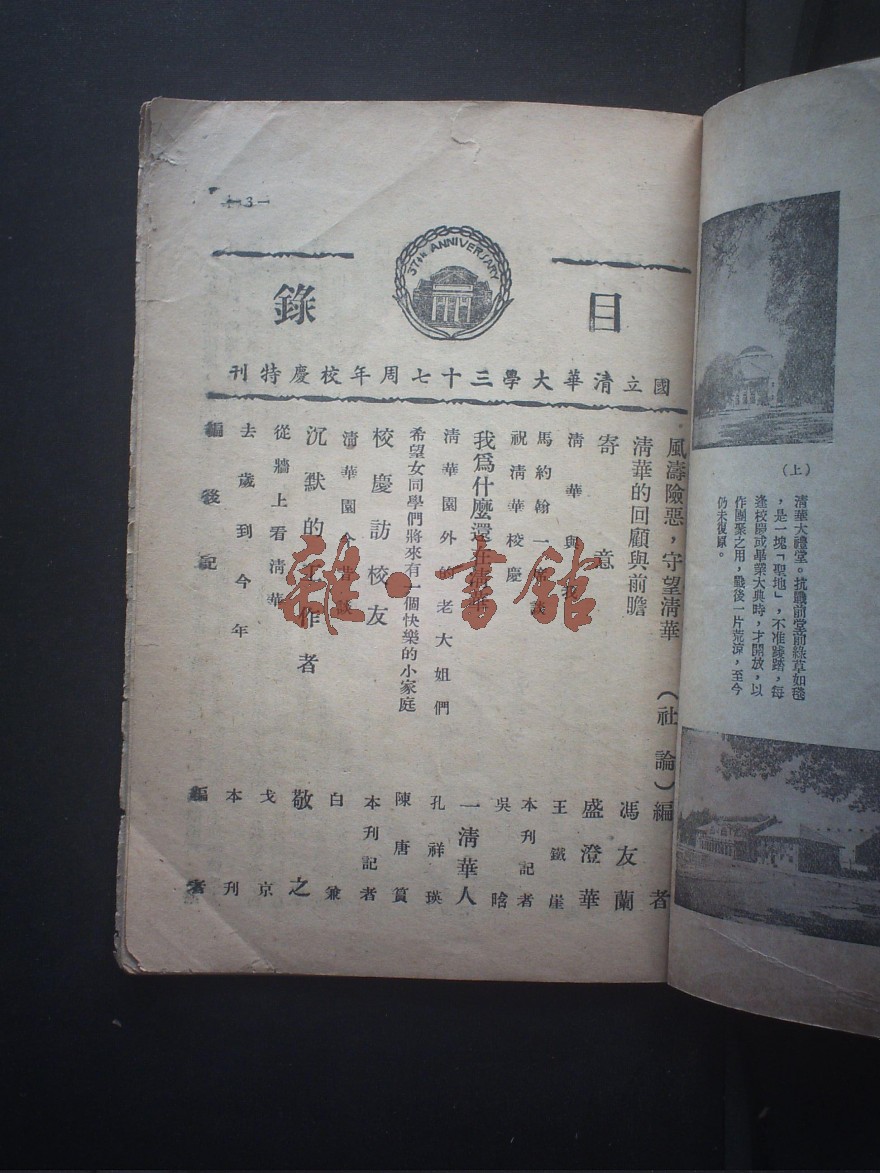 —3—
37th ANNIVERSARY
目錄
國立清華大學三十七周年校慶特刊
風濤險惡，守望清華（社論）編者
清華的回顧與前瞻 馮友蘭
寄意 盛澄華
清華與我 王鐵崖
馬約翰一席談 本刊記者
祝清華校慶 吳晗
我為什麼還在清華 一清華人
清華園外的老大姐們 孔祥瑛
希望女同學們將來有一個快樂的小家庭 陳唐篔
校慶訪校友 本刊記者
清華園今昔談 白兼
沉默的工作者 敬之
從牆上看清華 戈京
去歲到今年 本刊
編後記 編者
（上）
清華大禮堂。抗戰前堂前綠草如毯
，是一塊「聖地」，不准踐踏，每
逢校慶或畢業大典時，才開放，以
作團聚之用，戰後一片荒涼，至今
仍未復原。
雜·書館